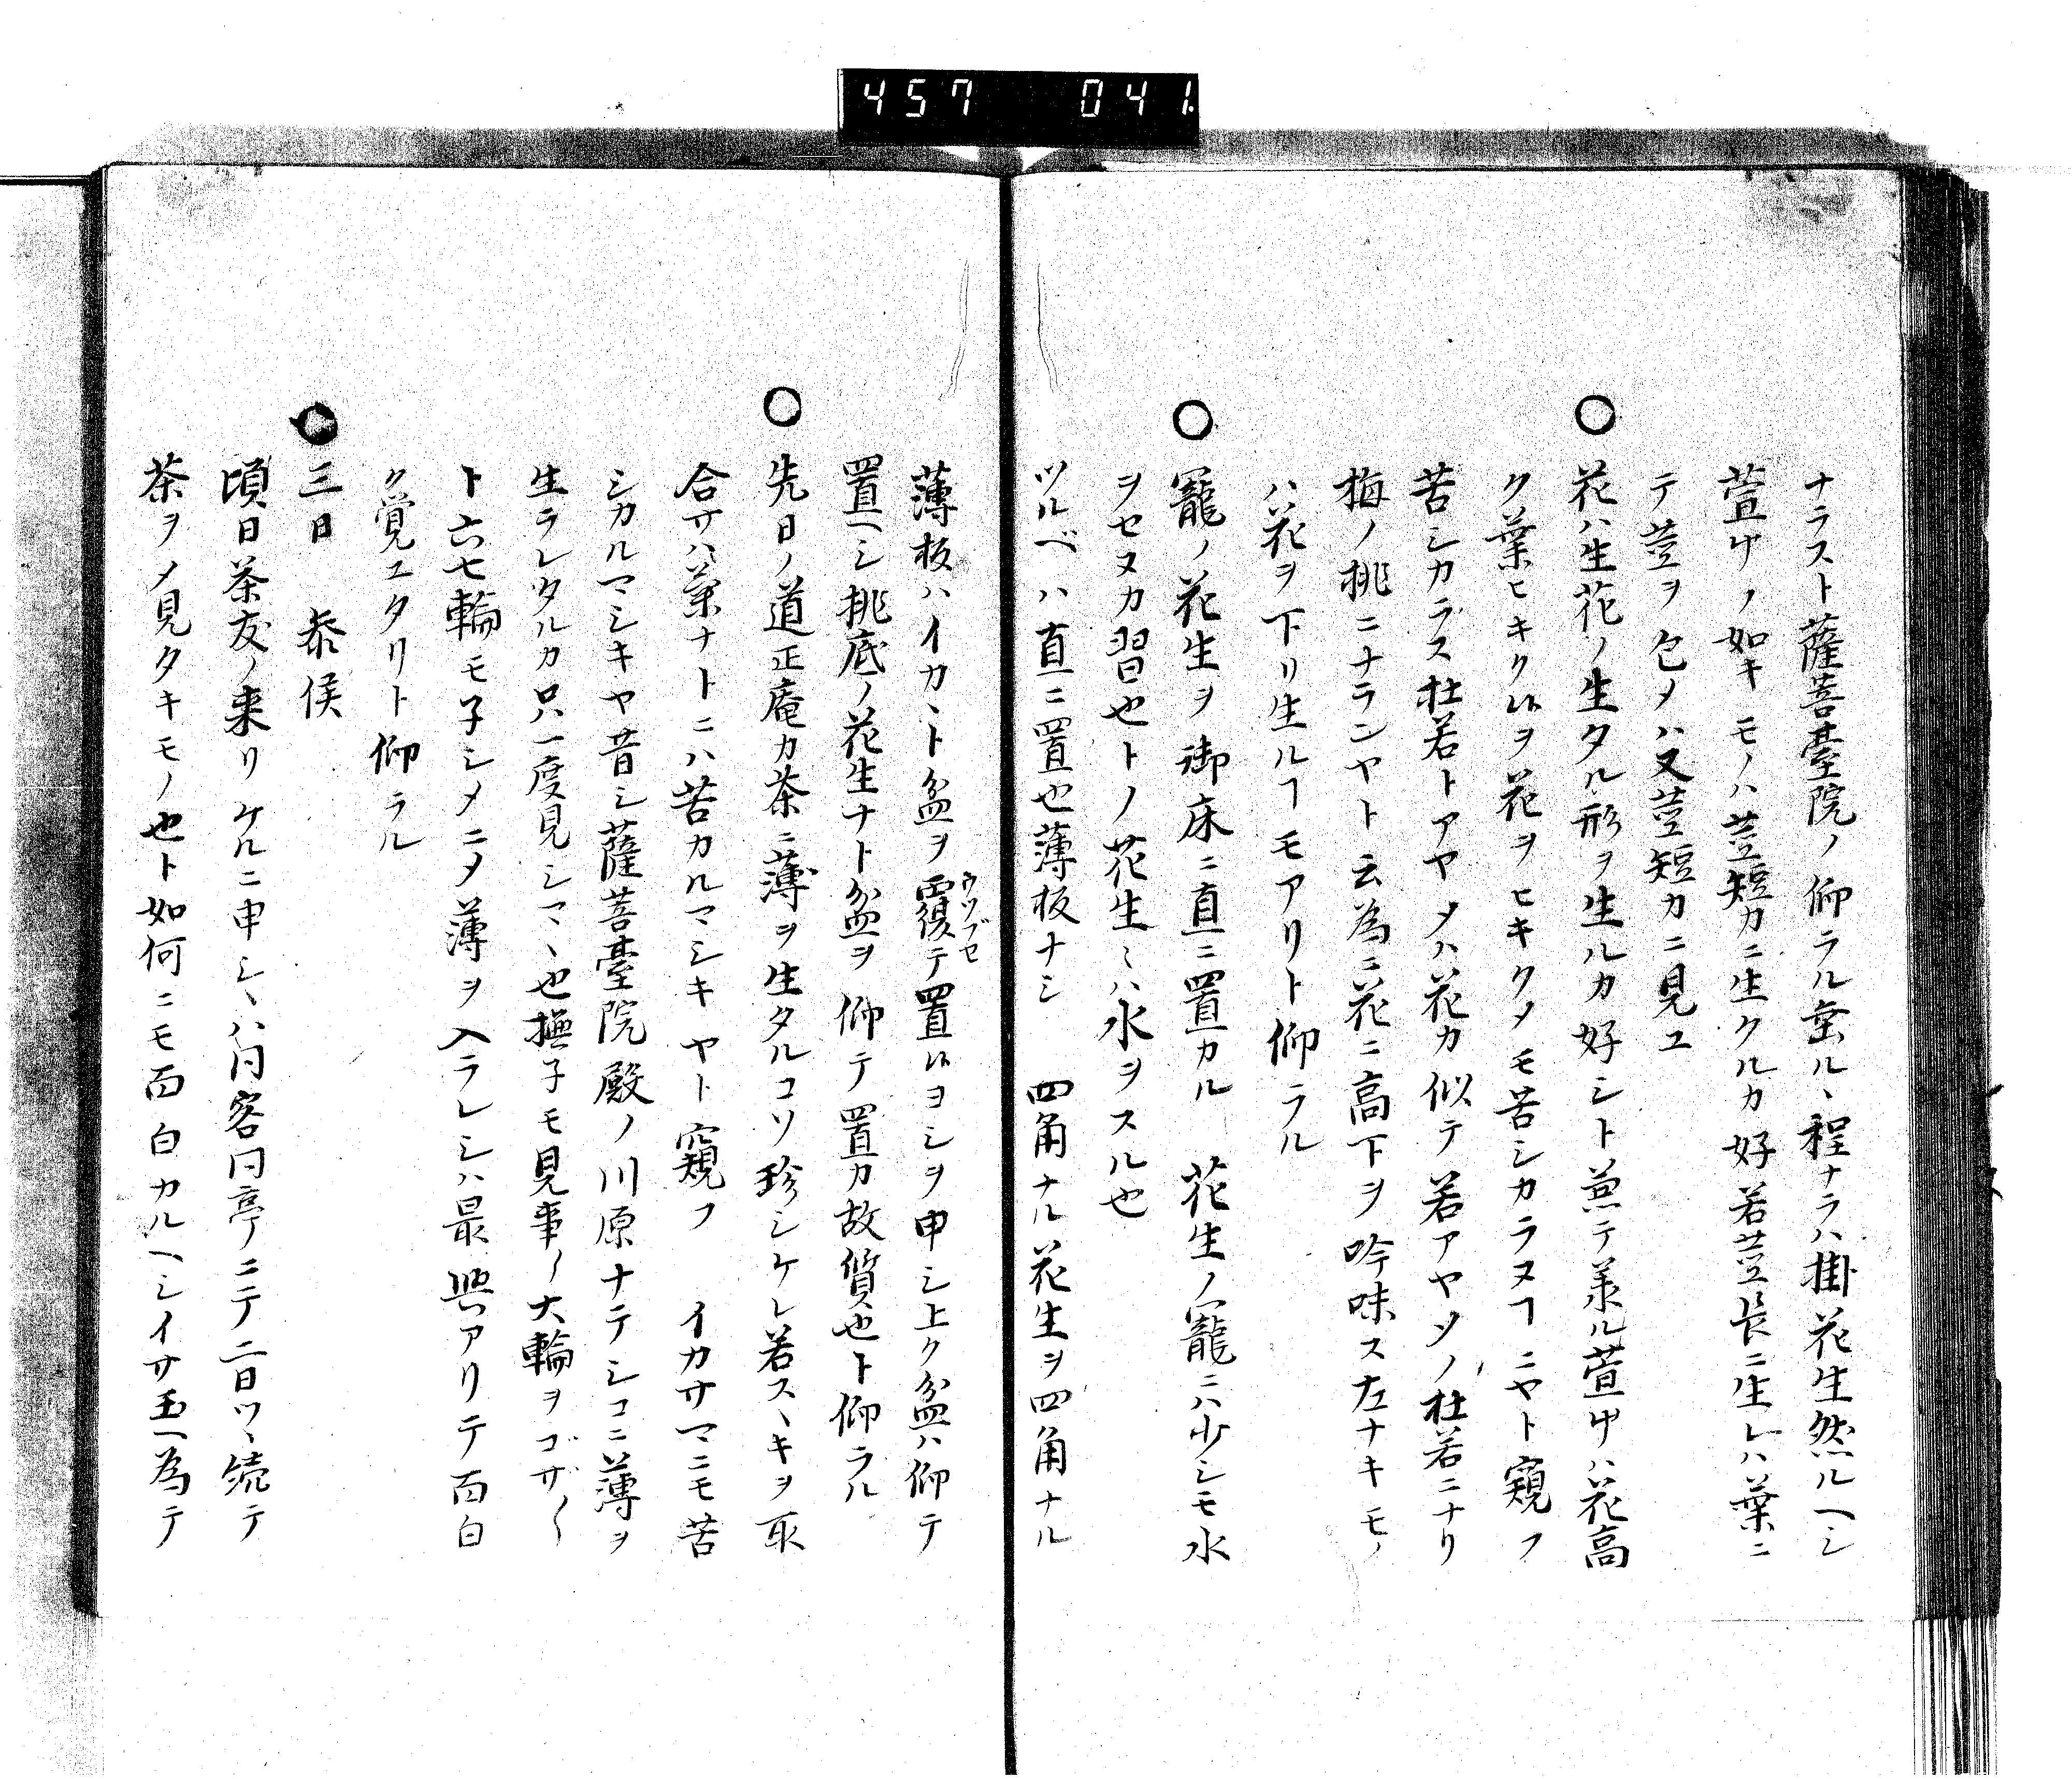 457 041.
ナラスト薩菩臺院ノ仰ラル垂ルヽ程ナラハ掛花生然ルヘシ
萱草ノ如キモノハ莖短カニ生クルカ好若莖長ニ生レハ葉ニ
テ莖ヲ包メハ又莖短カニ見ユ
○花ハ生花ノ生タル形ヲ生ルカ好シト兼テ承ル萱草ハ花高
ク葉ヒキク候ヲ花ヲヒキクメモ苦シカラヌヿニヤト窺フ
苦シカラス杜若トアヤメハ花カ似テ若アヤメノ杜若ニナリ
梅ノ桃ニナランヤト云為ニ花ニ高下ヲ吟味ス左ナキモノ
ハ花ヲ下リ生ルヿモアリト仰ラル
○籠ノ花生ヲ御床ニ直ニ置カル 花生ノ籠ニハ少シモ水
ヲセヌカ習也トノ花生ニハ水ヲスル也
ツルベハ直ニ置也薄板ナシ 四角ナル花生ヲ四角ナル
薄板ハイカヽト盆ヲ覆テ置候ヨシヲ申シ上ク盆ハ仰テ
ウツブセ
置ヘシ桃底ノ花生ナト盆ヲ仰テ置カ故質也ト仰ラル
○先日ノ道正庵カ茶ニ薄ヲ生タルコソ珍シケレ若スヽキヲ取
合サハ菊ナトニハ苦カルマシキヤト窺フ イカサマニモ苦
シカルマシキヤ昔シ薩菩臺院殿ノ川原ナテシコニ薄ヲ
生ラレタルカ只一度見シマヽ也撫子モ見事〱大輪ヲゴザ〱
ト六七輪モ子シメニメ薄ヲ入ラレシハ最興アリテ面白
ク覚ユタリト仰ラル
○三日 泰侯
頃日茶友ノ来リケルニ申シヽハ同客同亭ニテ二日ツヽ続テ
茶ヲノ見タキモノ也ト如何ニモ面白カルヘシイサ玉ヘ為テ